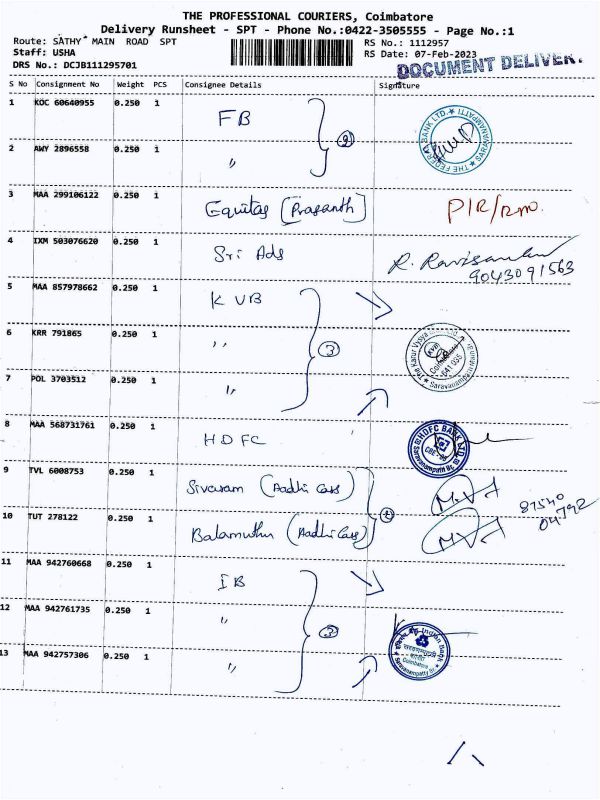 THE PROFESSIONAL COURIERS, Coimbatore
Delivery Runsheet - SPT - Phone No.:0422-3505555 - Page No.:1
Route: SATHY MAIN ROAD SPT RS No.: 1112957
Staff: USHA RS Date: 07-Feb-2023
DRS No.: DCJB111295701 DOCUMENT DELIVER
S No Consignment No Weight PCS Consignee Details Signature
1 KOC 60640955 0.250 1 FB
2 AWY 2896558 0.250 1 〃 2 THE FEDERAL BANK LTD. SARAVANAMPATTI
3 MAA 299106122 0.250 1 Equitas [Prasanth] PIR/Rmo.
4 IXM 503076620 0.250 1 Sri Ads R. Ravisankar
9043091563
5 MAA 857978662 0.250 1 KVB
6 KRR 791865 0.250 1 〃 3 The Karur Vysya Coimbatore 641 035
7 POL 3703512 0.250 1 〃
8 MAA 568731761 0.250 1 HDFC HDFC BANK LTD
9 TVL 6008753 0.250 1 Sivaram (Aadhi Cars) M.V.
10 TUT 278122 0.250 1 Balamuthu (Aadhi Cars) 2 M.V. 87540
04792
11 MAA 942760668 0.250 1 IB
12 MAA 942761735 0.250 1 〃 3 Indian Bank Coimbatore
13 MAA 942757306 0.250 1 〃